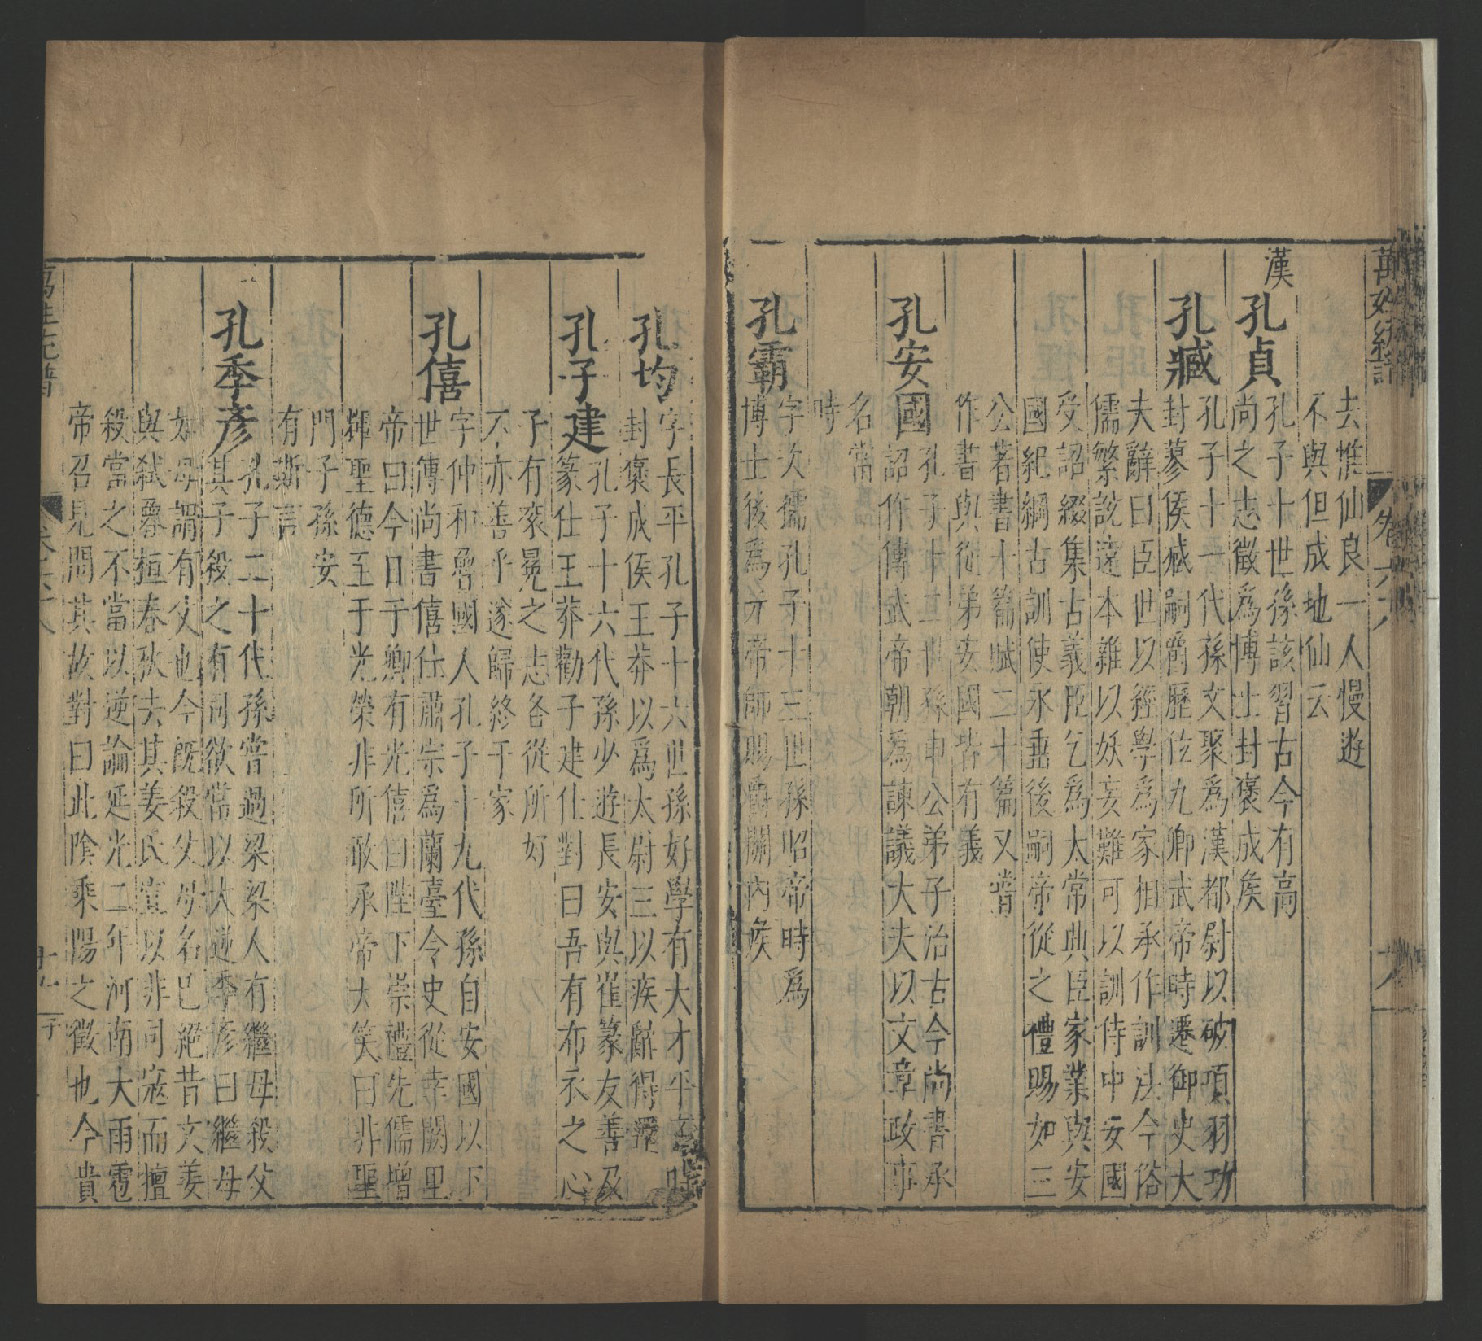 萬姓統譜 卷六八
去惟仙良一人慢遊
不與但成地仙云
漢
孔貞
孔子十世孫該習古今有高
尚之志徵為博士封褒成矦
孔臧
孔子十一代孫文聚為漢都尉以破項羽功
封蓼侯臧嗣爵歷位九卿武帝時遷御史大
夫辭曰臣世以經學為家相承作訓法今俗
儒繁說遠本雜以妖妄難可以訓侍中安國
受詔綴集古義臣乞為太常典臣家業與安
國紀綱古訓使永垂後嗣帝從之禮賜如三
公著書十篇賦二十篇又嘗
作書與從弟安國皆有義
孔安國
孔子十二世孫申公弟子治古今尚書承
詔作傳武帝朝為諫議大夫以文章政事
名當
時
孔霸
字次儒孔子十三世孫昭帝時為
博士後為元帝師賜爵關內矦
孔均
字長平孔子十六世孫好學有大才平帝時
封褒成侯王莽以為太尉三以疾辭得還
孔子建
孔子十六代孫少遊長安與崔篆友善及
篆仕王莽勸子建仕對曰吾有布衣之心
子有袞冕之志各從所好
不亦善乎遂歸終于家
孔僖
字仲和魯國人孔子十九代孫自安國以下
世傳尚書僖仕肅宗為蘭臺令史從幸闕里
帝曰今日于卿有光僖曰陛下崇禮先儒增
輝聖德至于光榮非所敢承帝大笑曰非聖
門子孫安
有斯言
孔季彥
孔子二十代孫嘗過梁梁人有繼母殺父
其子殺之有司欲當以大逆季彥曰繼母
如母謂有父也今既殺父母名已絕昔文姜
與弒魯桓春秋去其姜氏宜以非司寇而擅
殺當之不當以逆論延光二年河南大雨雹
帝召見問其故對曰此陰乘陽之徵也今貴
萬姓統譜 卷六八